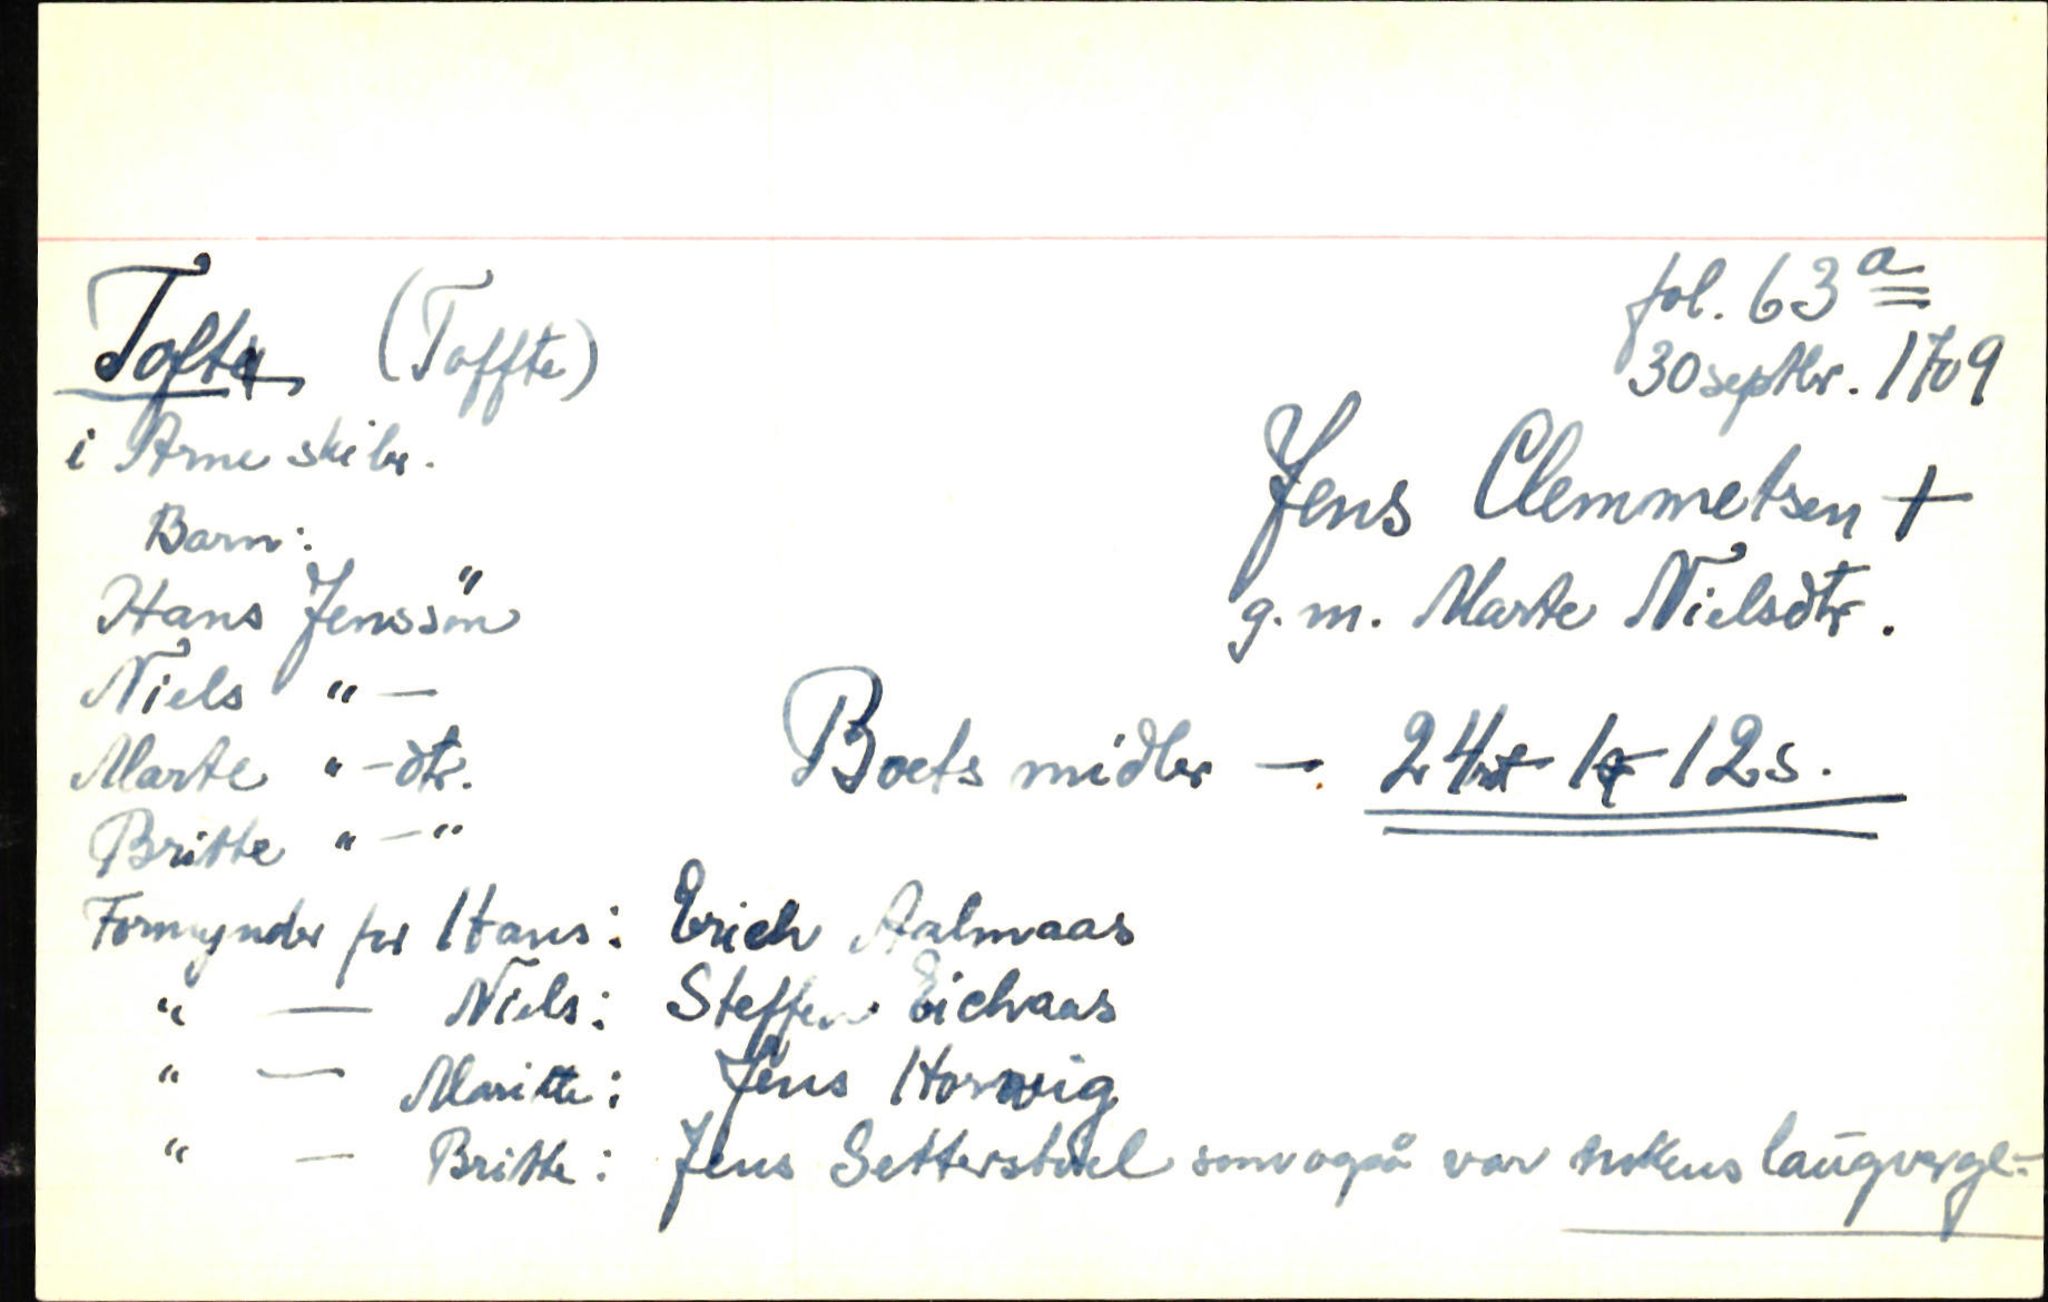 Tofte (Toffte)
fol. 63 a
30 septbr. 1709
i Arne skibr.
Jens Clemmetsen +
g. m. Marte Nielsdtr.
Barn:
Hans Jenssön
Niels " —
Marte " — dtr.
Britte " — "
Boets midler — 24 rd 1 ort 12 s.
Formynder for Hans: Erich Aalmaas
" — Niels: Steffen Eichaas
" — Maritte: Jens Horwig
" — Britte: Jens Setterstöel som også var enkens laugverge.